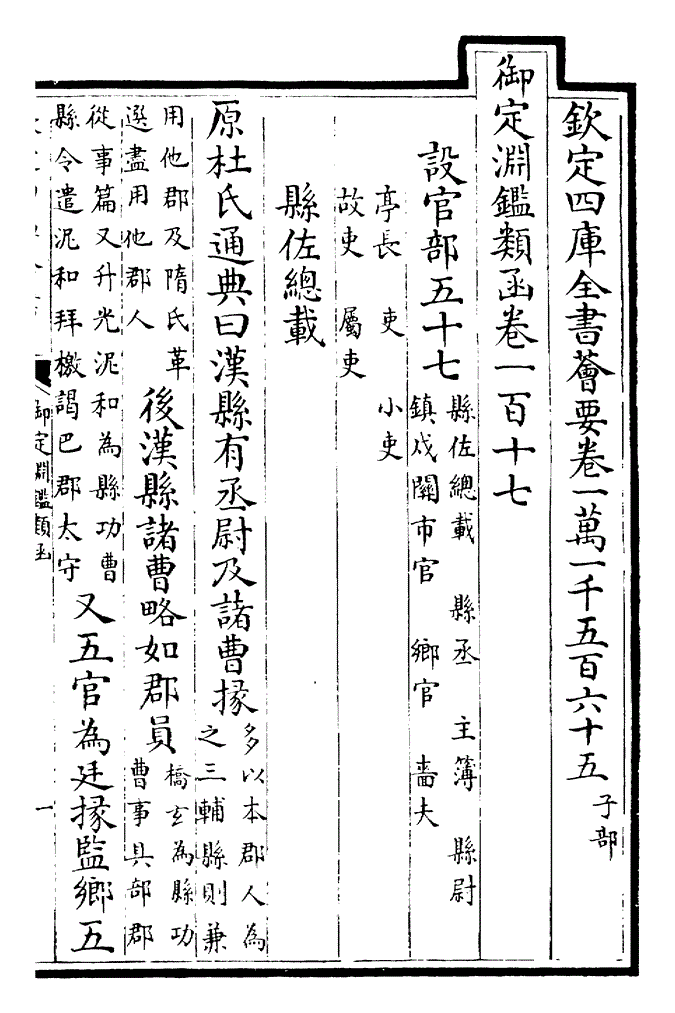 欽定四庫全書薈要卷一萬一千五百六十五 子部
御定淵鑑類函卷一百十七
設官部五十七
縣佐總載 縣丞 主簿 縣尉
鎮戍關市官 鄉官 嗇夫
亭長 吏 小吏
故吏 屬吏
縣佐總載
原杜氏通典曰漢縣有丞尉及諸曹掾
多以本郡人為
之三輔縣則兼
用他郡及隋氏革
選盡用他郡人
後漢縣諸曹略如郡員
橋玄為縣功
曹事具部郡
從事篇又升光泥和為縣功曹
縣令遣泥和拜檄謁巴郡太守
又五官為廷掾監鄉五
御定淵鑑類函
一